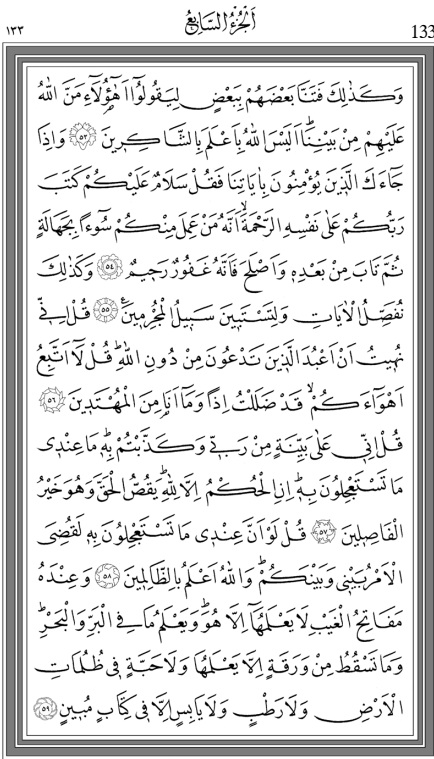 ١٣٣ اَلْجُزْءُ السَّابِعُ 133
وَكَذٰلِكَ فَتَنَّا بَعْضَهُمْ بِبَعْضٍ لِيَقُولُٓوا اَهٰٓؤُ۬لَٓاءِ مَنَّ اللّٰهُ
عَلَيْهِمْ مِنْ بَيْنِنَاۜ اَلَيْسَ اللّٰهُ بِاَعْلَمَ بِالشَّاكِرٖينَ ﴿٥٣﴾ وَاِذَا
جَٓاءَكَ الَّذٖينَ يُؤْمِنُونَ بِاٰيَاتِنَا فَقُلْ سَلَامٌ عَلَيْكُمْ كَتَبَ
رَبُّكُمْ عَلٰى نَفْسِهِ الرَّحْمَةَۙ اَنَّهُ مَنْ عَمِلَ مِنْكُمْ سُٓوءاً بِجَهَالَةٍ
ثُمَّ تَابَ مِنْ بَعْدِهٖ وَاَصْلَحَ فَاَنَّهُ غَفُورٌ رَحٖيمٌ ﴿٥٤﴾ وَكَذٰلِكَ
نُفَصِّلُ الْاٰيَاتِ وَلِتَسْتَبٖينَ سَبٖيلُ الْمُجْرِمٖينَ۟ ﴿٥٥﴾ قُلْ اِنّٖي
نُهٖيتُ اَنْ اَعْبُدَ الَّذٖينَ تَدْعُونَ مِنْ دُونِ اللّٰهِۜ قُلْ لَٓا اَتَّبِعُ
اَهْوَٓاءَكُمْۙ قَدْ ضَلَلْتُ اِذاً وَمَٓا اَنَا۬ مِنَ الْمُهْتَدٖينَ ﴿٥٦﴾
قُلْ اِنّٖي عَلٰى بَيِّنَةٍ مِنْ رَبّٖي وَكَذَّبْتُمْ بِهٖۜ مَا عِنْدٖي
مَا تَسْتَعْجِلُونَ بِهٖۜ اِنِ الْحُكْمُ اِلَّا لِلّٰهِۜ يَقُصُّ الْحَقَّ وَهُوَ خَيْرُ
الْفَاصِلٖينَ ﴿٥٧﴾ قُلْ لَوْ اَنَّ عِنْدٖي مَا تَسْتَعْجِلُونَ بِهٖ لَقُضِيَ
الْاَمْرُ بَيْنٖي وَبَيْنَكُمْۜ وَاللّٰهُ اَعْلَمُ بِالظَّالِمٖينَ ﴿٥٨﴾ وَعِنْدَهُ
مَفَاتِحُ الْغَيْبِ لَا يَعْلَمُهَٓا اِلَّا هُوَۜ وَيَعْلَمُ مَا فِي الْبَرِّ وَالْبَحْرِۜ
وَمَا تَسْقُطُ مِنْ وَرَقَةٍ اِلَّا يَعْلَمُهَا وَلَا حَبَّةٍ فٖي ظُلُمَاتِ
الْاَرْضِ وَلَا رَطْبٍ وَلَا يَابِسٍ اِلَّا فٖي كِتَابٍ مُبٖينٍ ﴿٥٩﴾